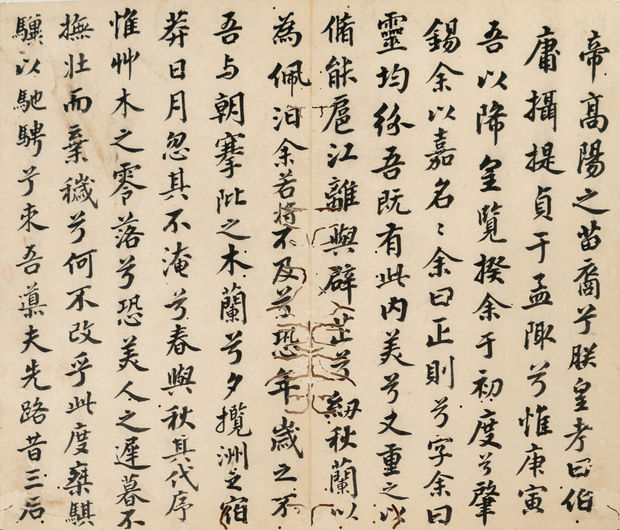 帝高陽之苗裔兮朕皇考曰伯
庸攝提貞于孟陬兮惟庚寅
吾以降皇覽揆余于初度兮肇
錫余以嘉名〻余曰正則兮字余曰
靈均紛吾既有此内美兮又重之以
脩能扈江離與辟芷兮紉秋蘭以
為佩汩余若將不及兮恐年歲之不
吾与朝搴阰之木蘭兮夕攬洲之宿
莽日月忽其不淹兮春與秋其代序
惟艸木之零落兮恐美人之遲暮不
撫壯而棄穢兮何不改乎此度椉騏
驥以馳騁兮来吾導夫先路昔三后